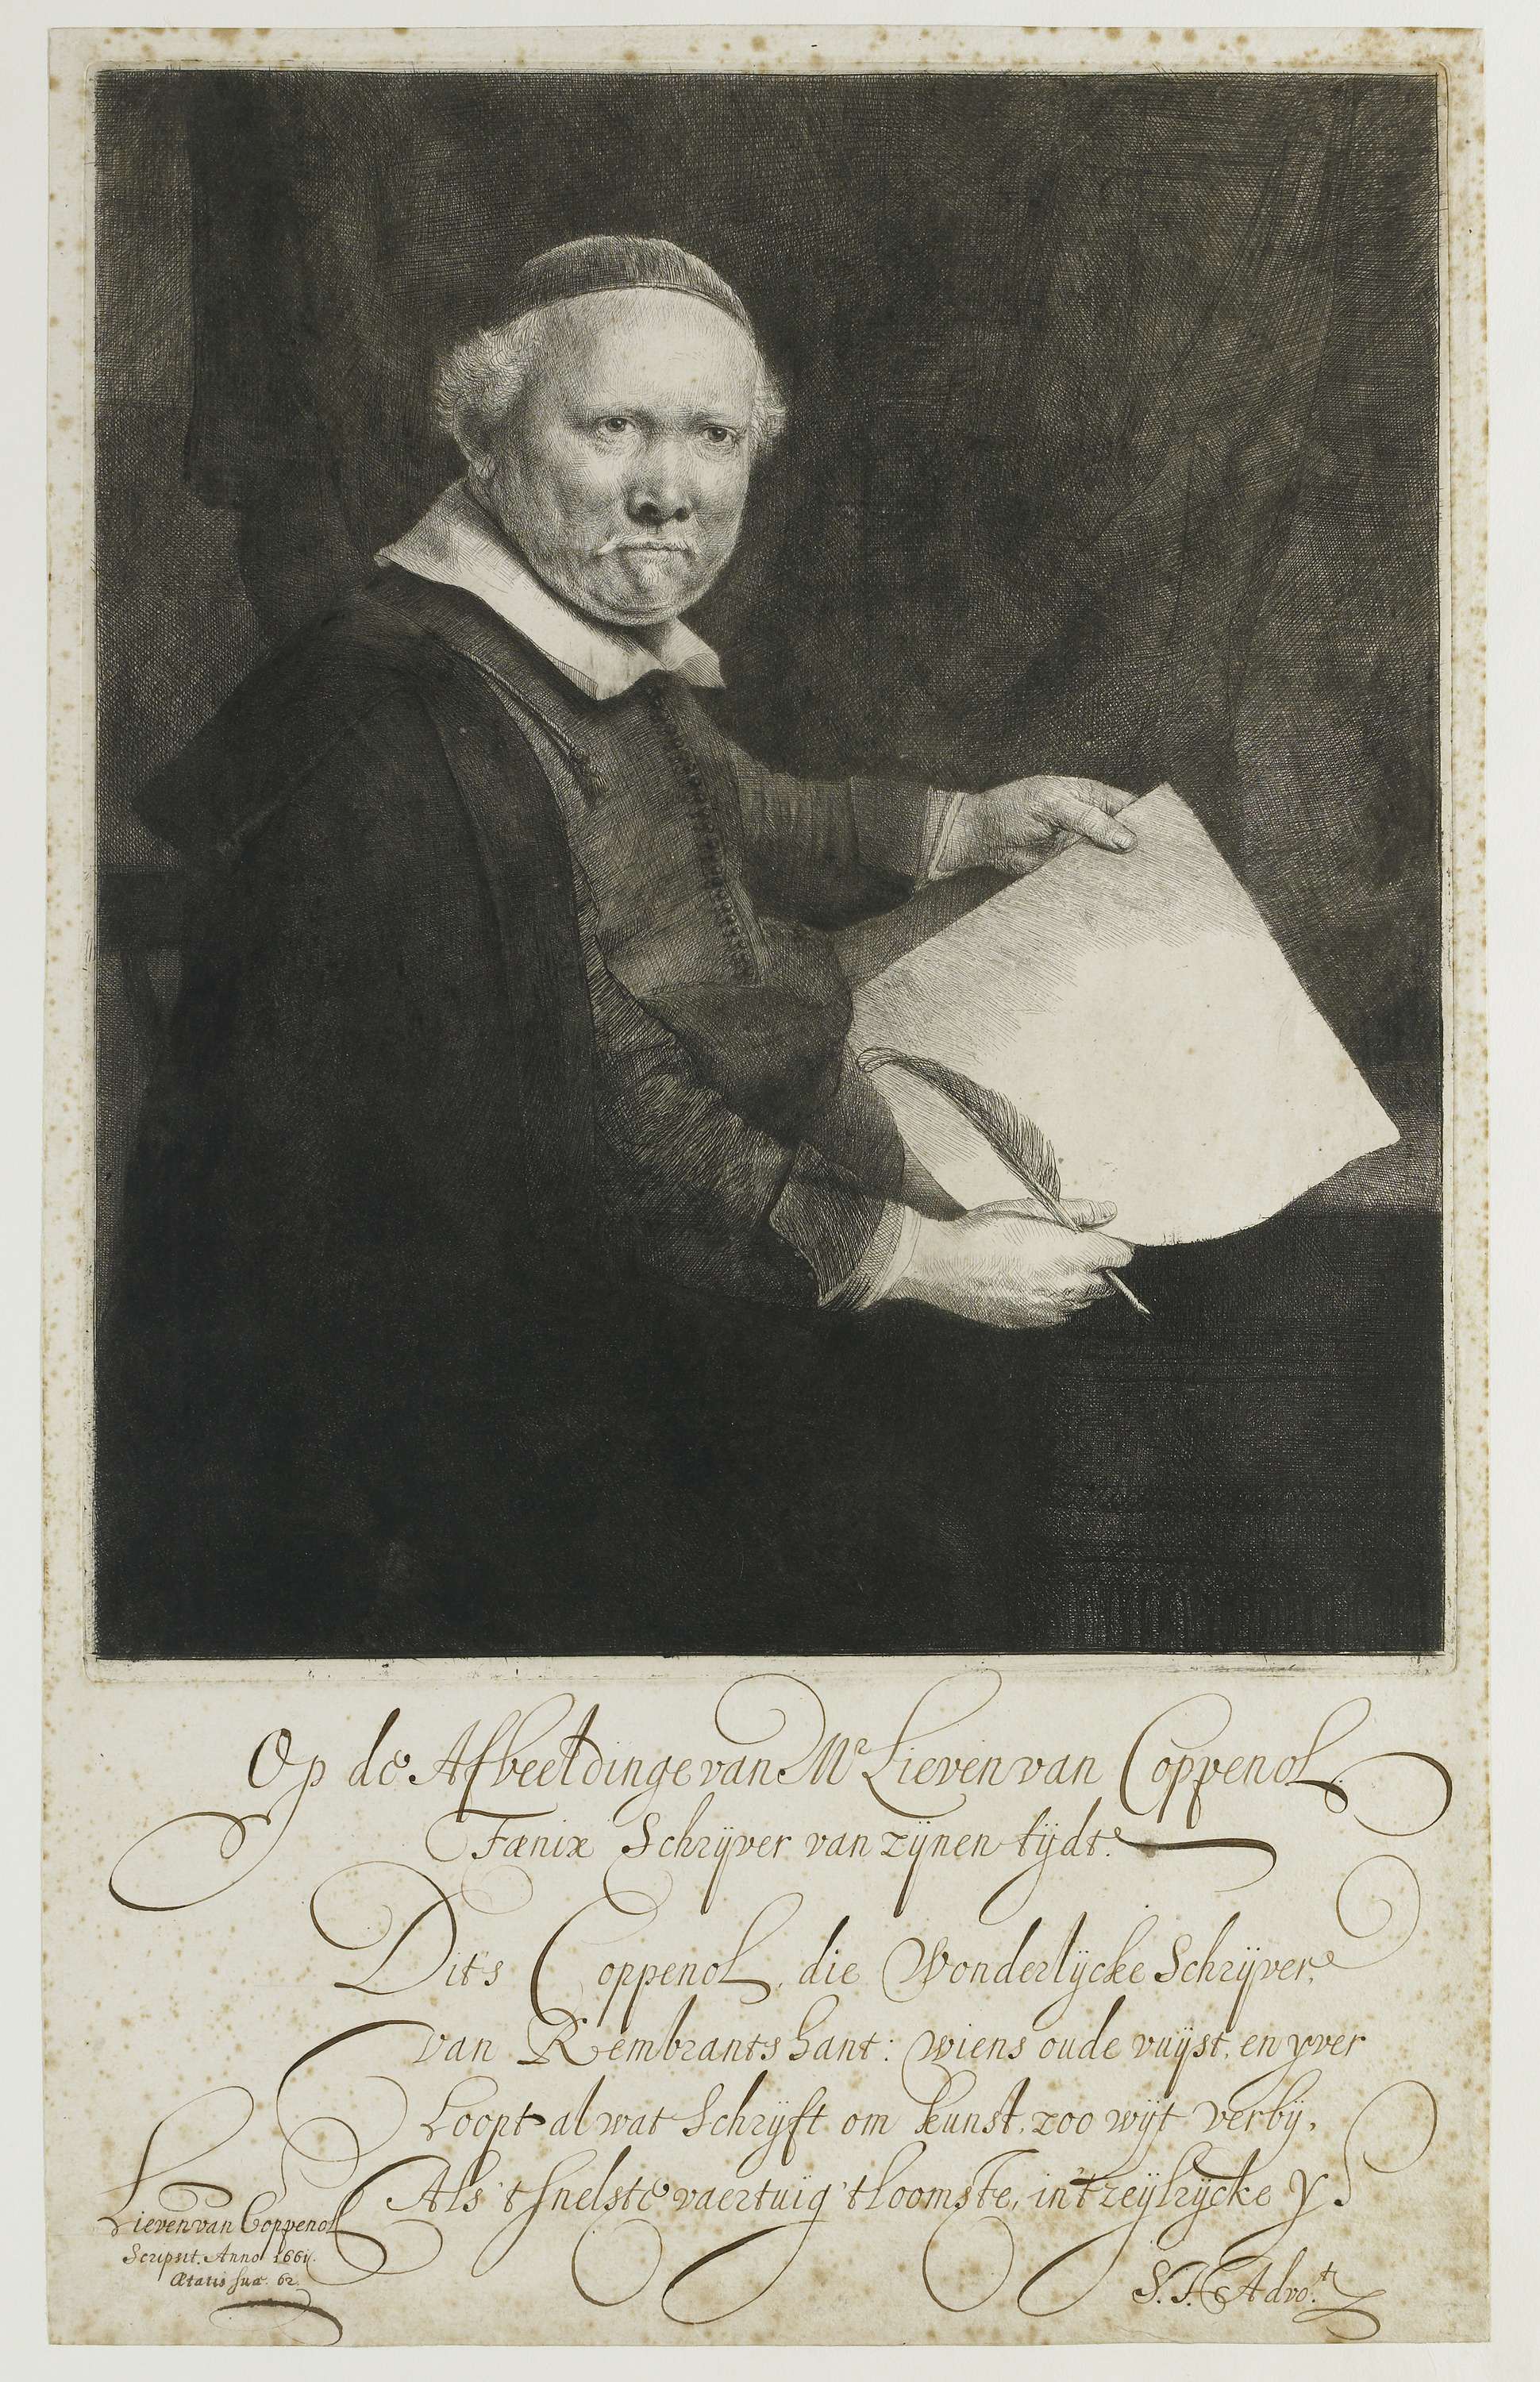 Op de Afbeeldinge van Mr Lieven van Coppenol.
Fœnix Schrijver van zijnen tijdt.
Dit's Coppenol, die Wonderlijcke Schrijver,
van Rembrants hant: wiens oude vuijst, en yver
Loopt al wat Schrijft om kunst, zoo wijt verbij,
Als 't snelste vaertuig 't loomste, in't zeijlrijcke Y.
S. I. Advo.t
Lieven van Coppenol
Scripsit. Anno 1661.
Ætatis suæ. 62.